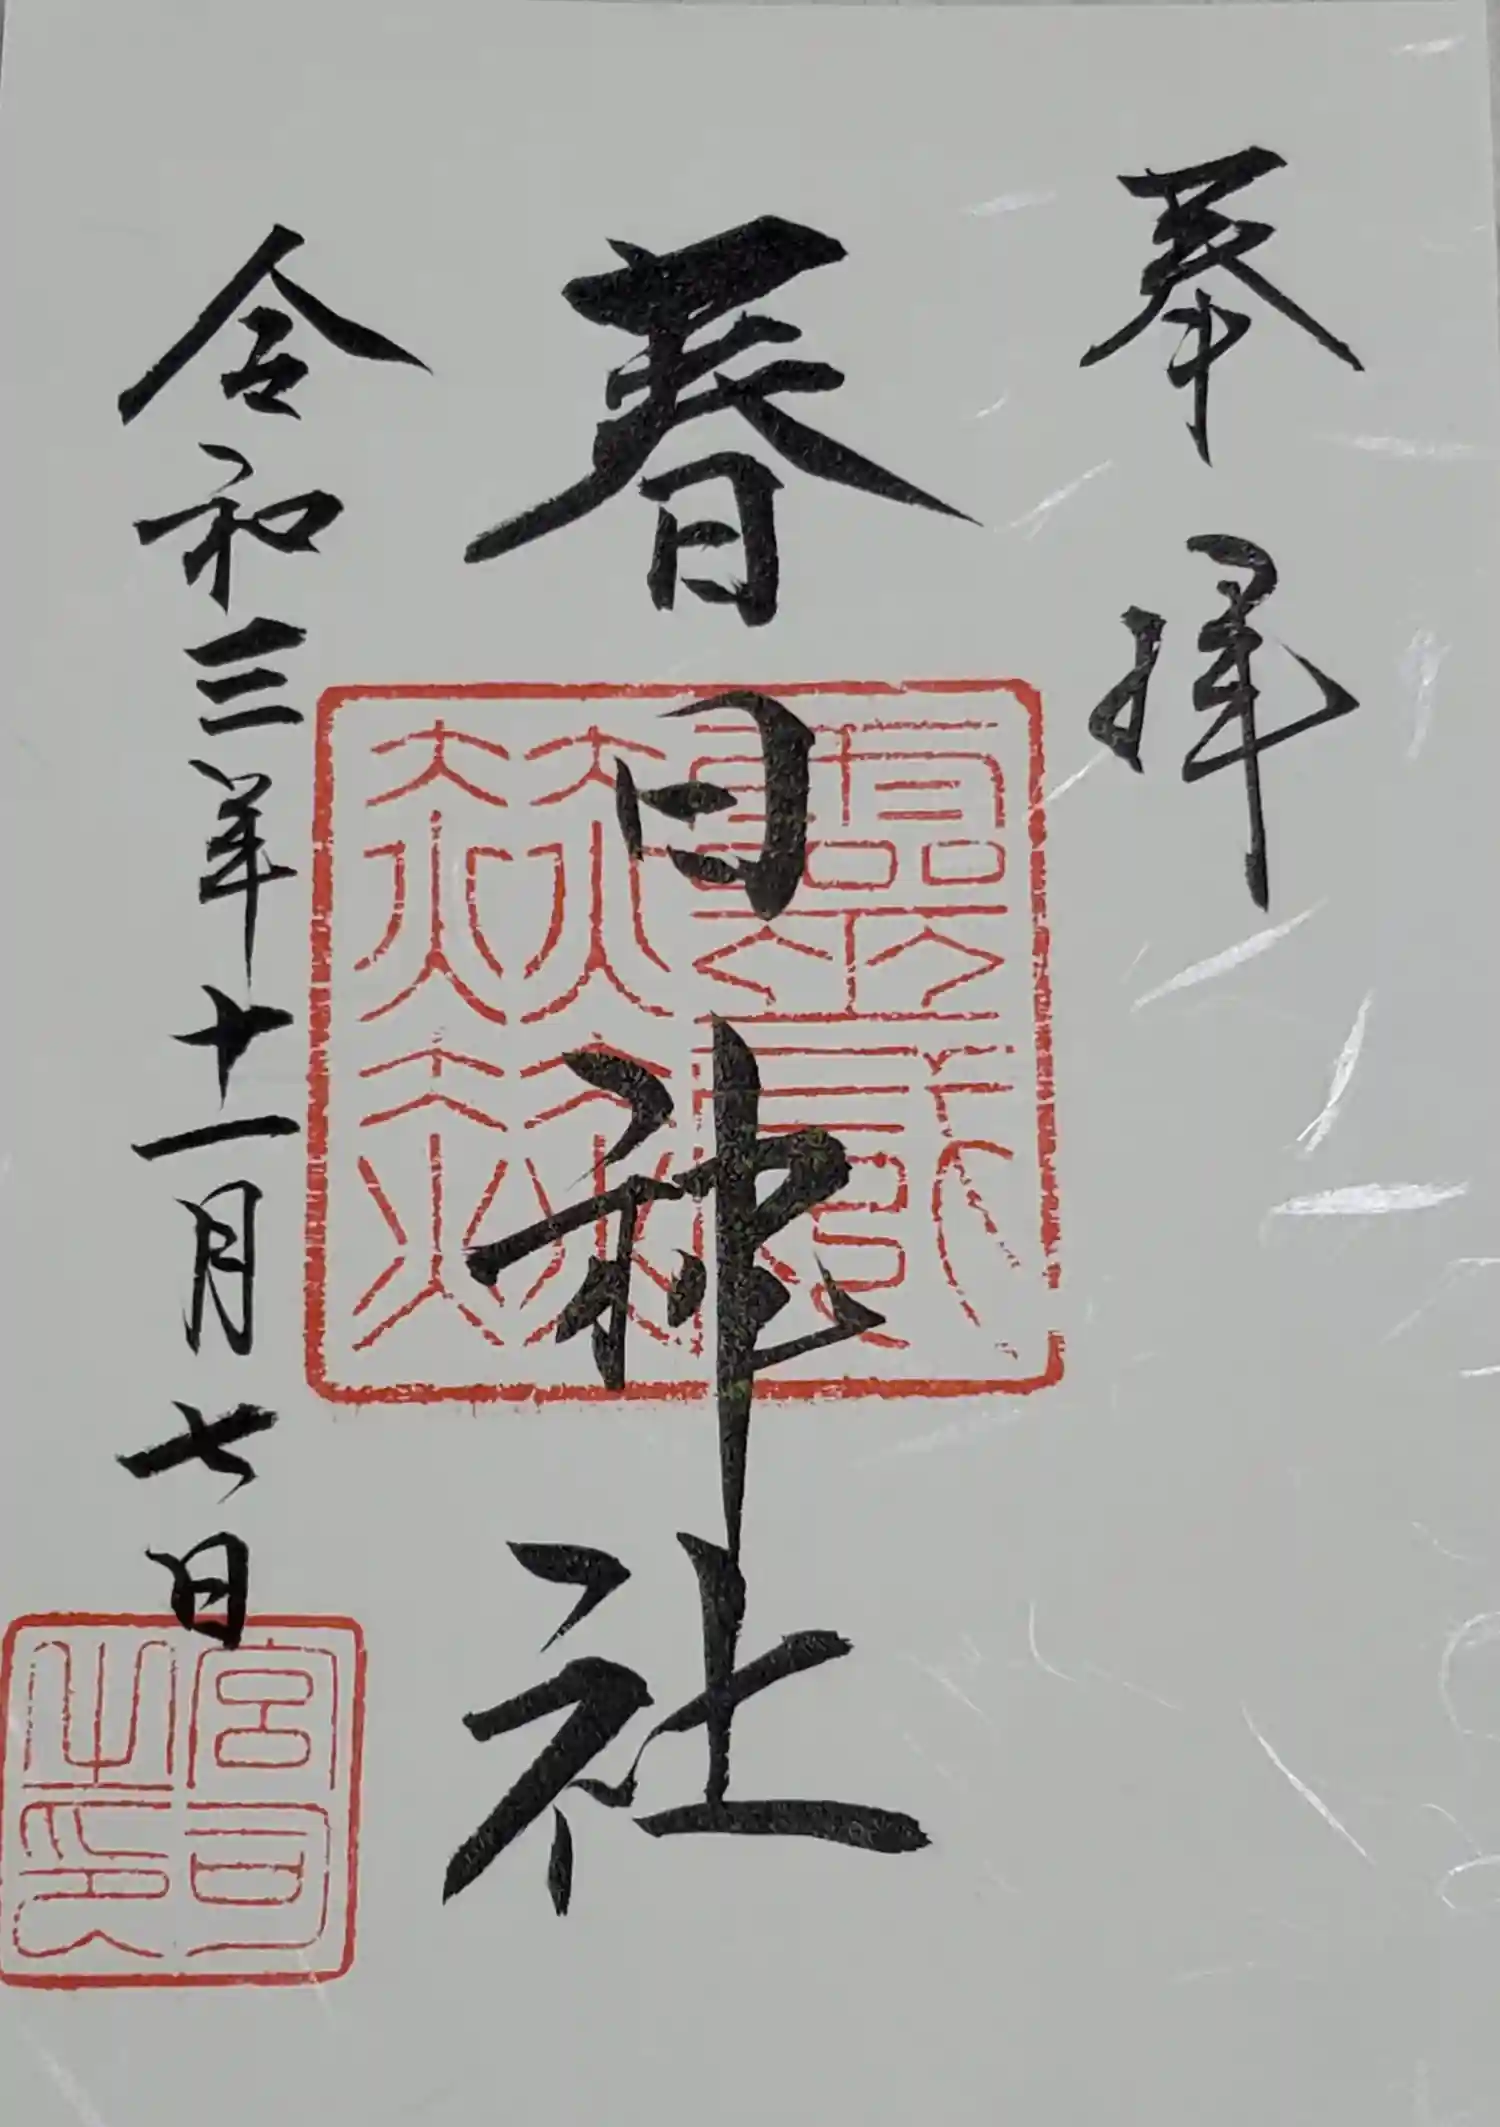 奉拝
春日神社
令和三年十一月七日
靈威赫赫
宮司之印